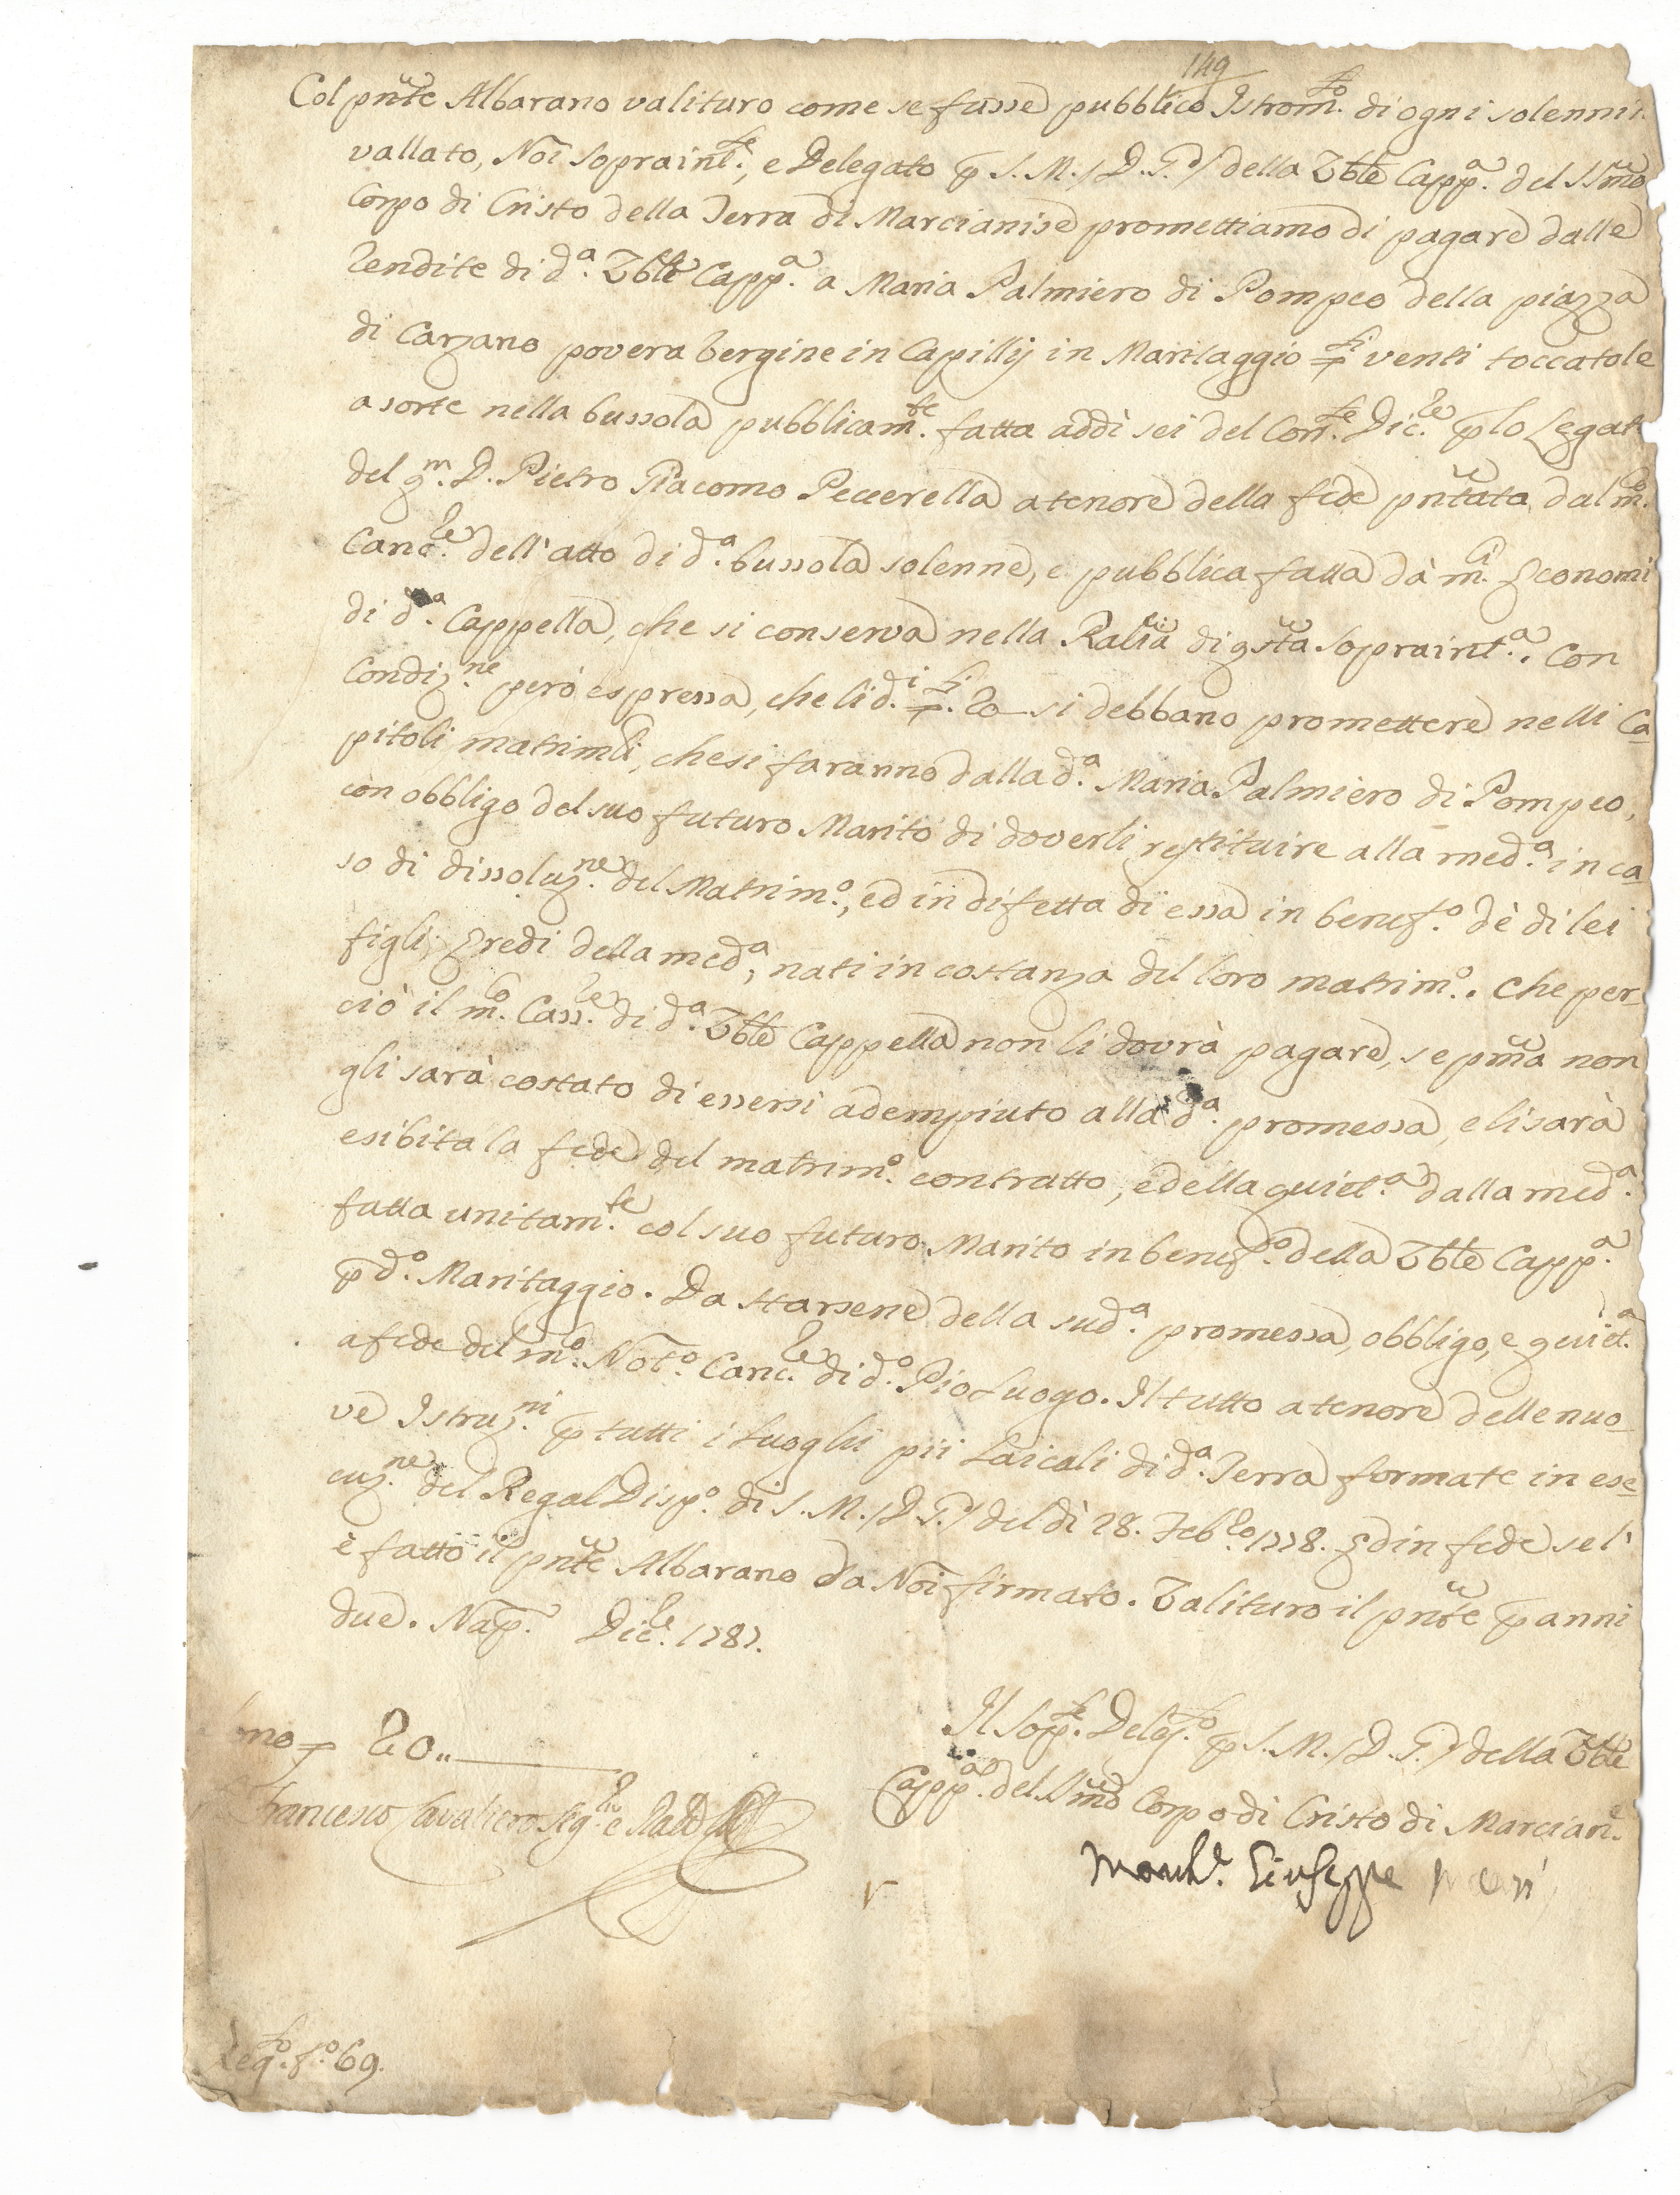 149
Col pñte Albarano valituro come se fusse pubblico Istrom.to di ogni solennit
vallato, Noi Sopraint.te, e Delegato p S. M. / D. G. / della Vble Capp.a del SSmo
Corpo di Cristo della Terra di Marcianise promettiamo di pagare dalle
rendite di d.a Vble Capp.a a Maria Palmiero di Pompeo della piazza
di Carzano povera bergine in Capillij in Maritaggio venti toccatole
a sorte nella bussola pubblicam.te fatta addì sei del Corr.te Dic.e p lo Legat
del q.m D. Pietro Giacomo Peccerella a tenore della fede pñtata dal m.o
Canc.le dell' atto di d.a bussola solenne, e pubblica fatta dà m.i Economi
di d.a Cappella, che si conserva nella Ralià di qsta Sopraint.a. Con
Condiz.ne però espressa, che li d.i 20 si debbano promettere nelli Ca-
pitoli matrimli, che si faranno dalla d.a Maria Palmiero di Pompeo,
con obbligo del suo futuro Marito di doverli restituire alla med.a in ca-
so di dissoluz.ne del Matrim.o, ed in difetta di essa in benef.o dè di lei
figli, Eredi della med.a, nati in costanza del loro matrim.o. Che per-
ciò il m.o Cass.re di d.a Vble Cappella non li dovrà pagare, se pma non
gli sarà costato di essersi adempiuto alla d.a promessa, e li sarà
esibita la fede del matrim.o contratto, e della quiet.a dalla med.a
fatta unitam.te col suo futuro Marito in benef.o della Vble Capp.a
p d.o Maritaggio. Da starsene della sud.a promessa, obbligo, e quiet.a
a fede del m.o Not.o Canc.le di d.o Pio Luogo. Il tutto a tenore delle nuo-
ve Istruz.ni p tutti i Luoghi pii Laicali di d.a Terra formate in ese-
cuz.ne del Regal Disp.o di S. M. / D. G. / del dì 28. Feb.ro 1778. Ed in fede se l'
è fatto il pñte Albarano da Noi firmato. Valituro il pñte p anni
due. Nap. Dic.e 1787.
Il Sop.te Deleg.to p S. M. / D. G. / della Vble
20..
Capp.a del SSmo Corpo di Cristo di Marcian.e
Francesco Cavaliero Seg.rio
Giuseppe
Reg.to f.o 69.